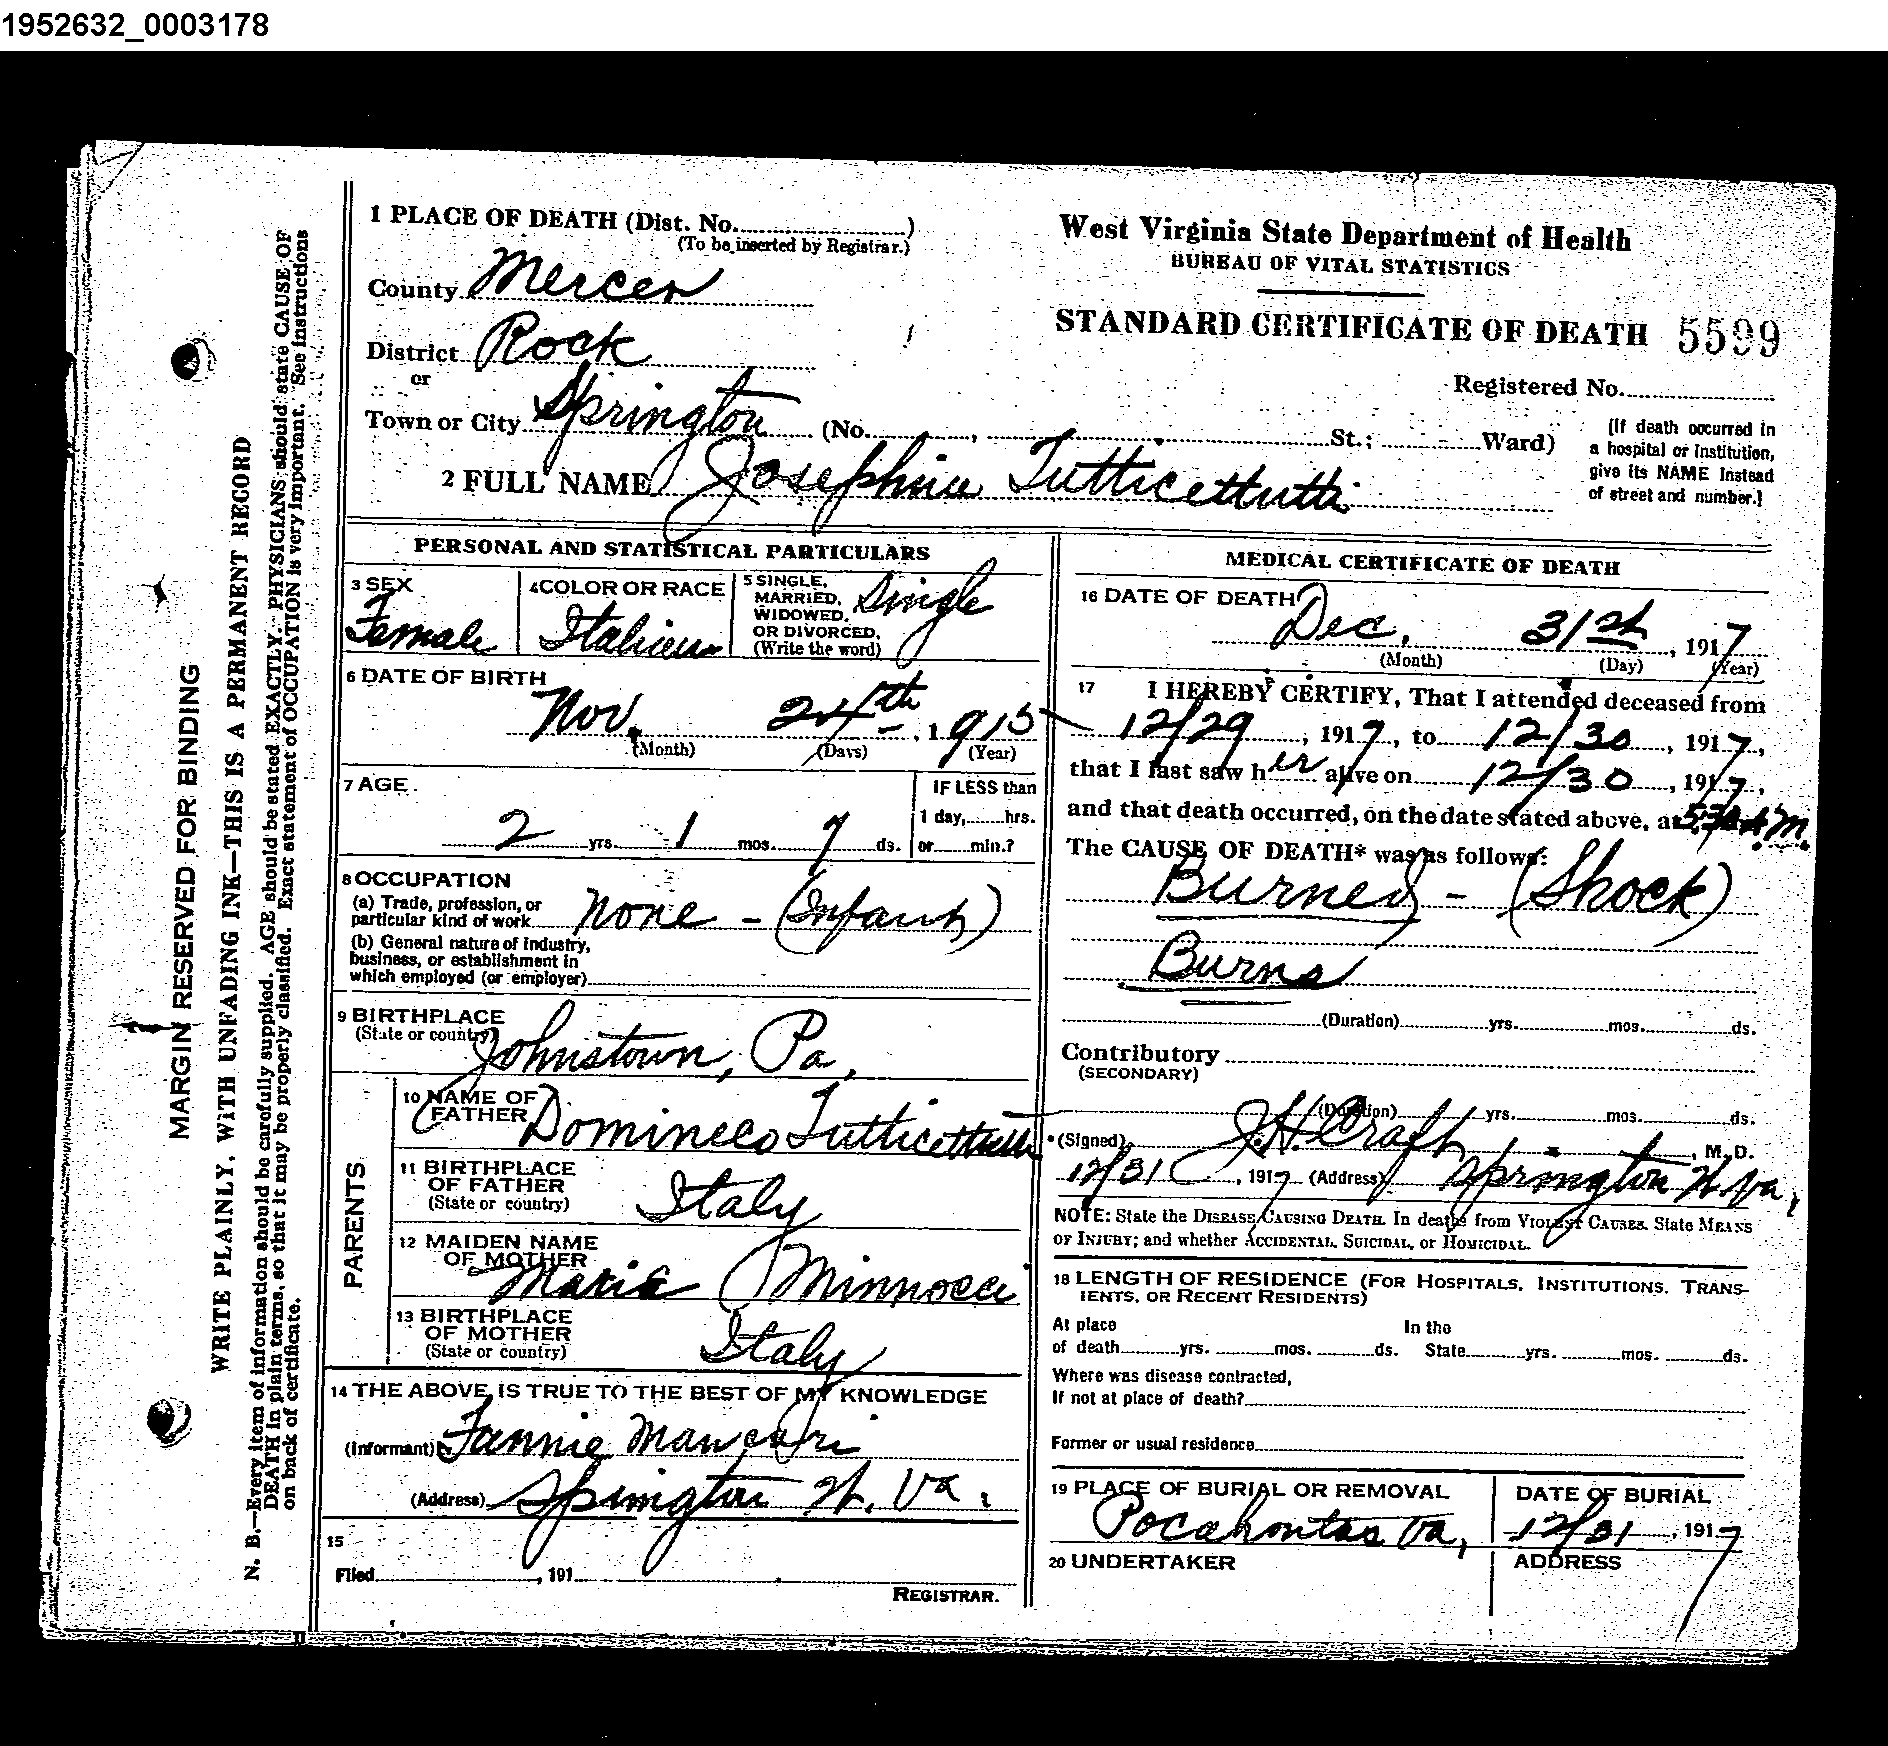 1952632_0003178
MARGIN RESERVED FOR BINDING
WRITE PLAINLY, WITH UNFADING INK—THIS IS A PERMANENT RECORD
N. B.—Every item of information should be carefully supplied. AGE should be stated EXACTLY. PHYSICIANS should state CAUSE OF
DEATH in plain terms, so that it may be properly classified. Exact statement of OCCUPATION is very important. See instructions
on back of certificate.
1 PLACE OF DEATH (Dist. No. )
(To be inserted by Registrar.)
County Mercer
District Rock
or
Town or City Springton (No. , St.; Ward)
2 FULL NAME Josephine Tutticettutti
West Virginia State Department of Health
BUREAU OF VITAL STATISTICS
STANDARD CERTIFICATE OF DEATH 5599
Registered No.
(If death occurred in
a hospital or institution,
give its NAME instead
of street and number.)
PERSONAL AND STATISTICAL PARTICULARS
3 SEX
Female
4 COLOR OR RACE
Italian
5 SINGLE,
MARRIED,
WIDOWED,
OR DIVORCED,
(Write the word)
Single
6 DATE OF BIRTH
Nov. 24th, 1915
(Month) (Days) (Year)
7 AGE
2 yrs. 1 mos. 7 ds.
IF LESS than
1 day, hrs.
or min.?
8 OCCUPATION
(a) Trade, profession, or
particular kind of work None - (Infant)
(b) General nature of industry,
business, or establishment in
which employed (or employer)
9 BIRTHPLACE
(State or country)
Johnstown, Pa,
PARENTS
10 NAME OF
FATHER Domineco Tutticettutti
11 BIRTHPLACE
OF FATHER
(State or country) Italy
12 MAIDEN NAME
OF MOTHER
Maria Minnocci
13 BIRTHPLACE
OF MOTHER
(State or country) Italy
14 THE ABOVE IS TRUE TO THE BEST OF MY KNOWLEDGE
(Informant) Fannie Mancari
(Address) Spington W. Va.
15
Filed , 191
REGISTRAR.
MEDICAL CERTIFICATE OF DEATH
16 DATE OF DEATH
Dec, 31st, 1917
(Month) (Day) (Year)
17 I HEREBY CERTIFY, That I attended deceased from
12/29, 1917, to 12/30, 1917,
that I last saw her alive on 12/30, 1917,
and that death occurred, on the date stated above, at A.M.
The CAUSE OF DEATH* was as follows:
Burned - (Shock)
Burns
(Duration) yrs. mos. ds.
Contributory
(SECONDARY)
(Duration) yrs. mos. ds.
(Signed) J.H. Craft, M.D.
12/31, 1917 (Address) Springton W. Va,
NOTE: State the DISEASE CAUSING DEATH. In deaths from VIOLENT CAUSES. State MEANS
OF INJURY; and whether ACCIDENTAL, SUICIDAL, or HOMICIDAL.
18 LENGTH OF RESIDENCE (FOR HOSPITALS, INSTITUTIONS, TRANS-
IENTS, OR RECENT RESIDENTS)
At place In the
of death yrs. mos. ds. State yrs. mos. ds.
Where was disease contracted,
If not at place of death?
Former or usual residence
19 PLACE OF BURIAL OR REMOVAL
Pocahontas Va,
DATE OF BURIAL
12/31, 1917
20 UNDERTAKER
ADDRESS